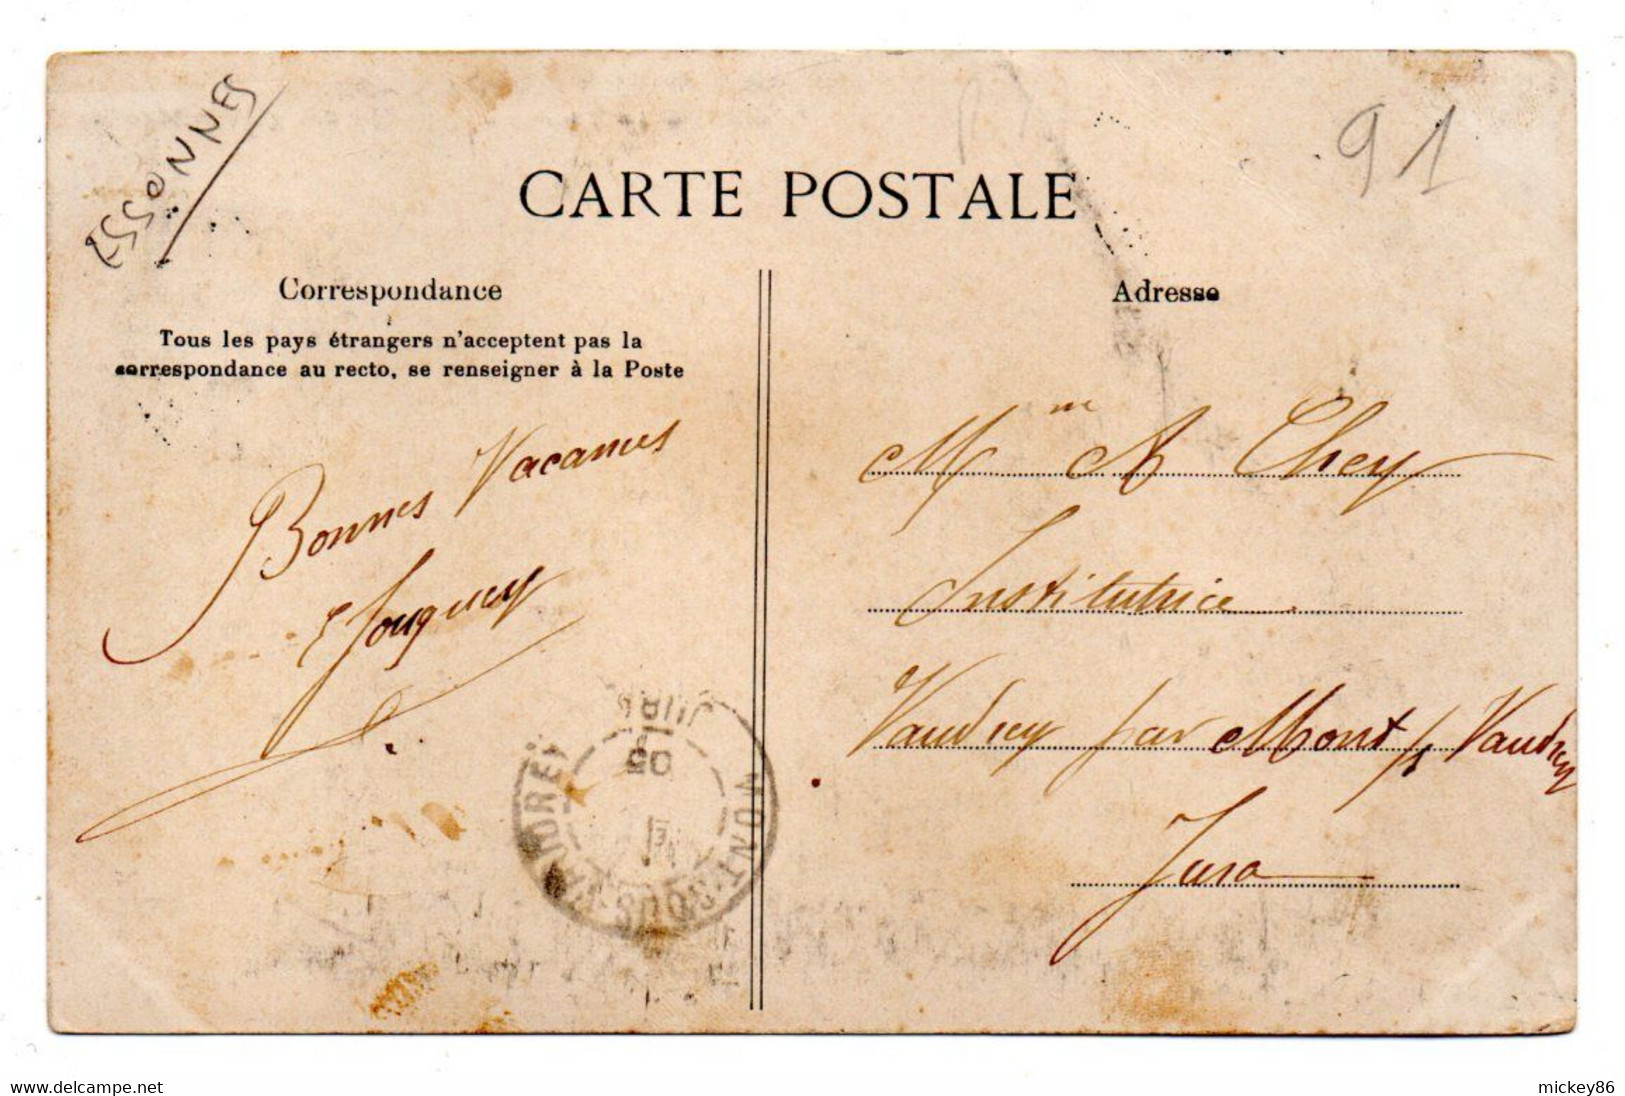 ESSONNES
91
CARTE POSTALE
Correspondance
Tous les pays étrangers n'acceptent pas la
correspondance au recto, se renseigner à la Poste
Bonnes Vacances
Adresse
Mme A Chey
Institutrice
Vaudrey par Mont s/s Vaudrey
Jura
MONT-SOUS-VAUDREY
JURA
05
www.delcampe.net
mickey86